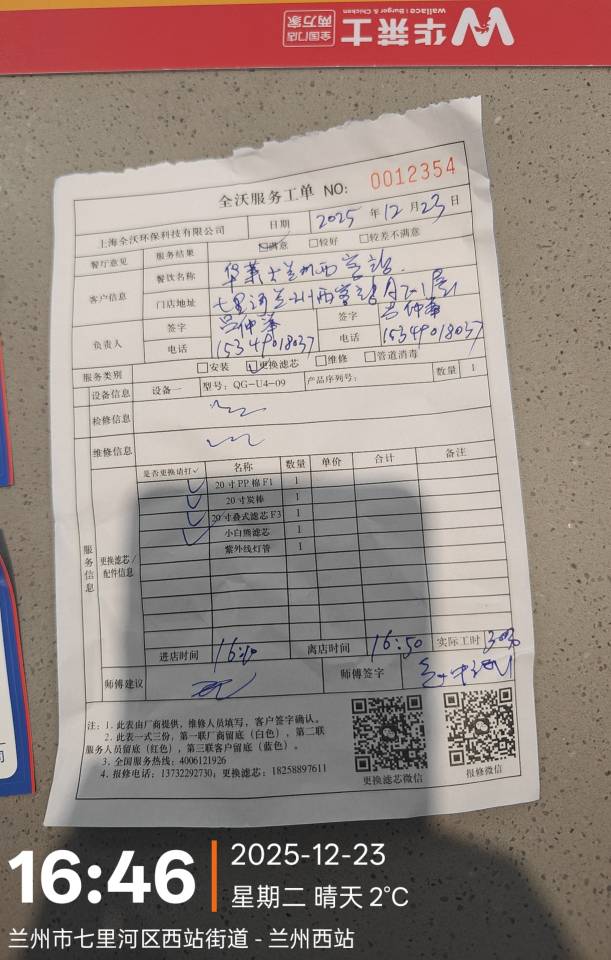 华莱士
Wallace | Burger & Chicken
全国门店
两万家
全沃服务工单 NO: 0012354
上海全沃环保科技有限公司 日期 2025年12月23日
餐厅意见 服务结果 ☑满意 □较好 □较差不满意
客户信息 餐饮名称 华莱士兰州西客站
门店地址 七里河兰州西客站
负责人 签字 签字
电话 15349018037 电话 15349018037
服务类别 □安装 ☑更换滤芯 □维修 □管道消毒
设备信息 设备一 型号: QG-U4-09 产品序列号: 数量 1
检修信息
维修信息
服务信息 更换滤芯/配件信息
是否更换请打✓ 名称 数量 单价 合计 备注
✓ 20寸PP棉F1 1
✓ 20寸炭棒 1
✓ 20寸叠式滤芯F3 1
✓ 小白熊滤芯 1
紫外线灯管 1
进店时间 离店时间 16:50 实际工时
师傅建议 师傅签字
注: 1. 此表由厂商提供，维修人员填写，客户签字确认。
2. 此表一式三份，第一联厂商留底（白色），第二联
服务人员留底（红色），第三联客户留底（蓝色）。
3. 全国服务热线: 4006121926
4. 报修电话: 13732292730; 更换滤芯: 18258897611
更换滤芯微信 报修微信
16:46
2025-12-23
星期二 晴天 2℃
兰州市七里河区西站街道 - 兰州西站